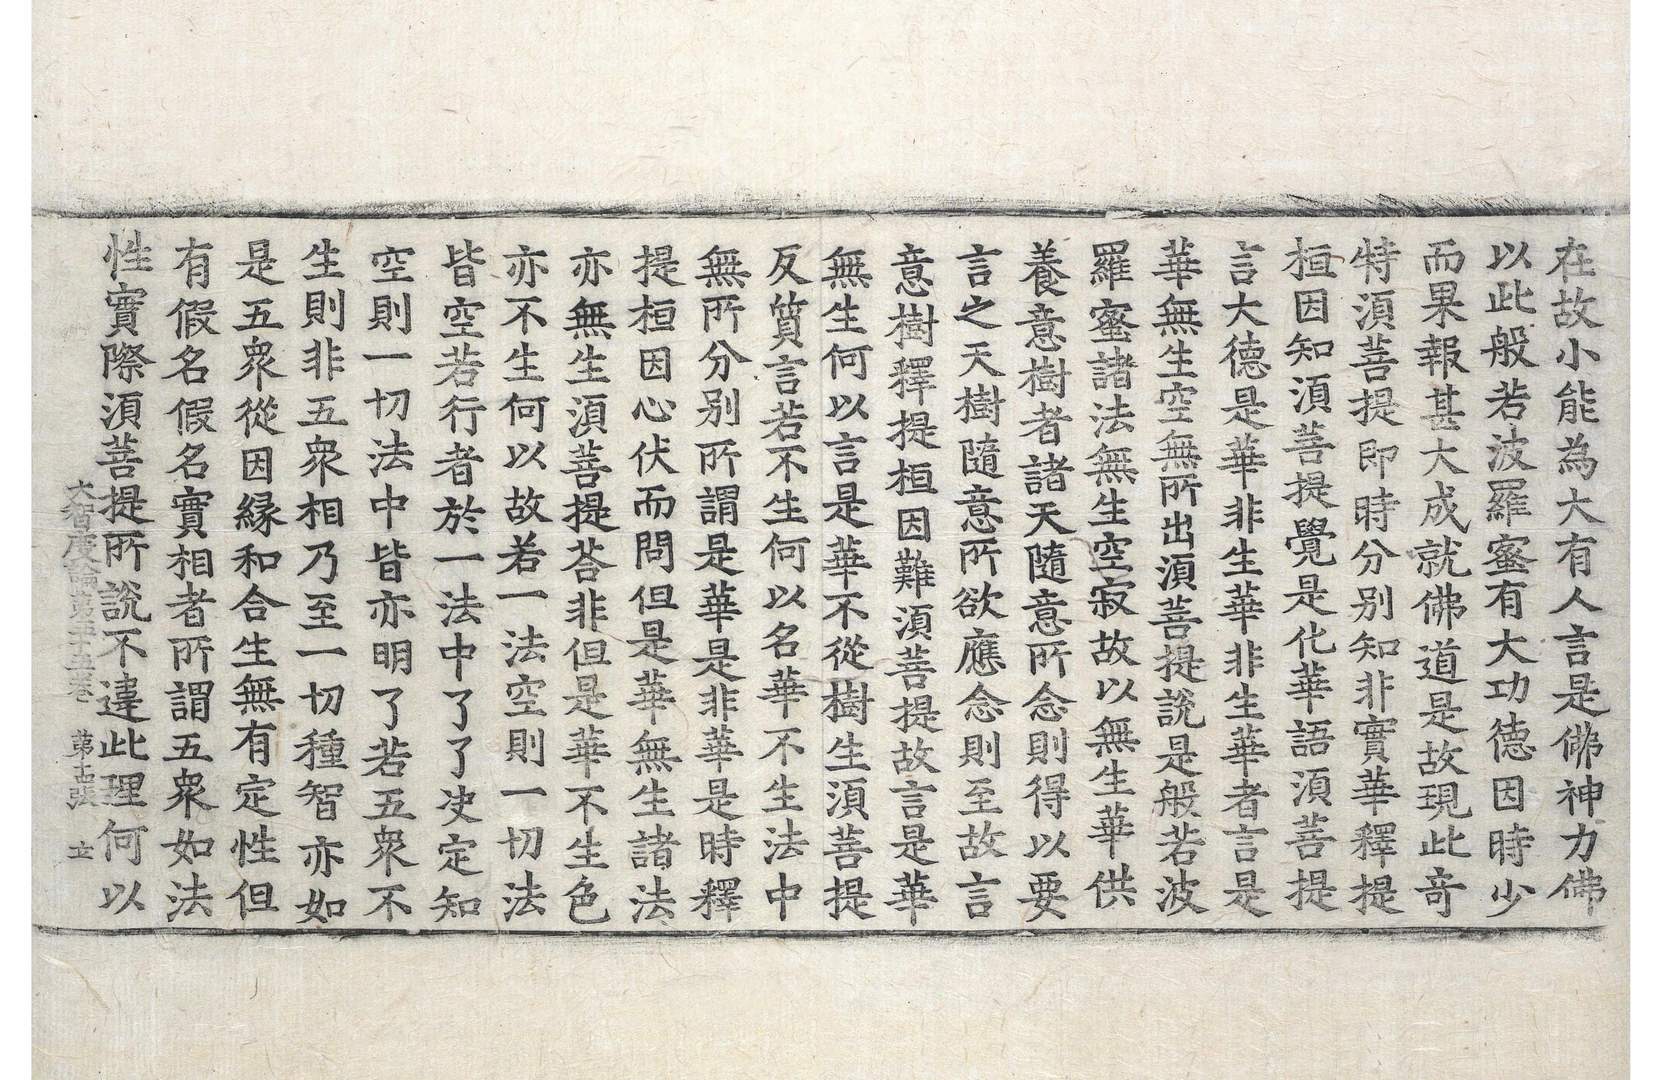 在故小能為大有人言是佛神力佛
以此般若波羅蜜有大功德因時少
而果報甚大成就佛道是故現此奇
特須菩提即時分別知非實華釋提
桓因知須菩提覺是化華語須菩提
言大德是華非生華非生華者言是
華無生空無所出須菩提說是般若波
羅蜜諸法無生空寂故以無生華供
養意樹者諸天隨意所念則得以要
言之天樹隨意所欲應念則至故言
意樹釋提桓因難須菩提故言是華
無生何以言是華不從樹生須菩提
反質言若不生何以名華不生法中
無所分別所謂是華是非華是時釋
提桓因心伏而問但是華無生諸法
亦無生須菩提荅非但是華不生色
亦不生何以故若一法空則一切法
皆空若行者於一法中了了決定知
空則一切法中皆亦明了若五衆不
生則非五衆相乃至一切種智亦如
是五衆從因緣和合生無有定性但
有假名假名實相者所謂五衆如法
性實際須菩提所說不違此理何以
大智度論第五十五卷 第十五張 立